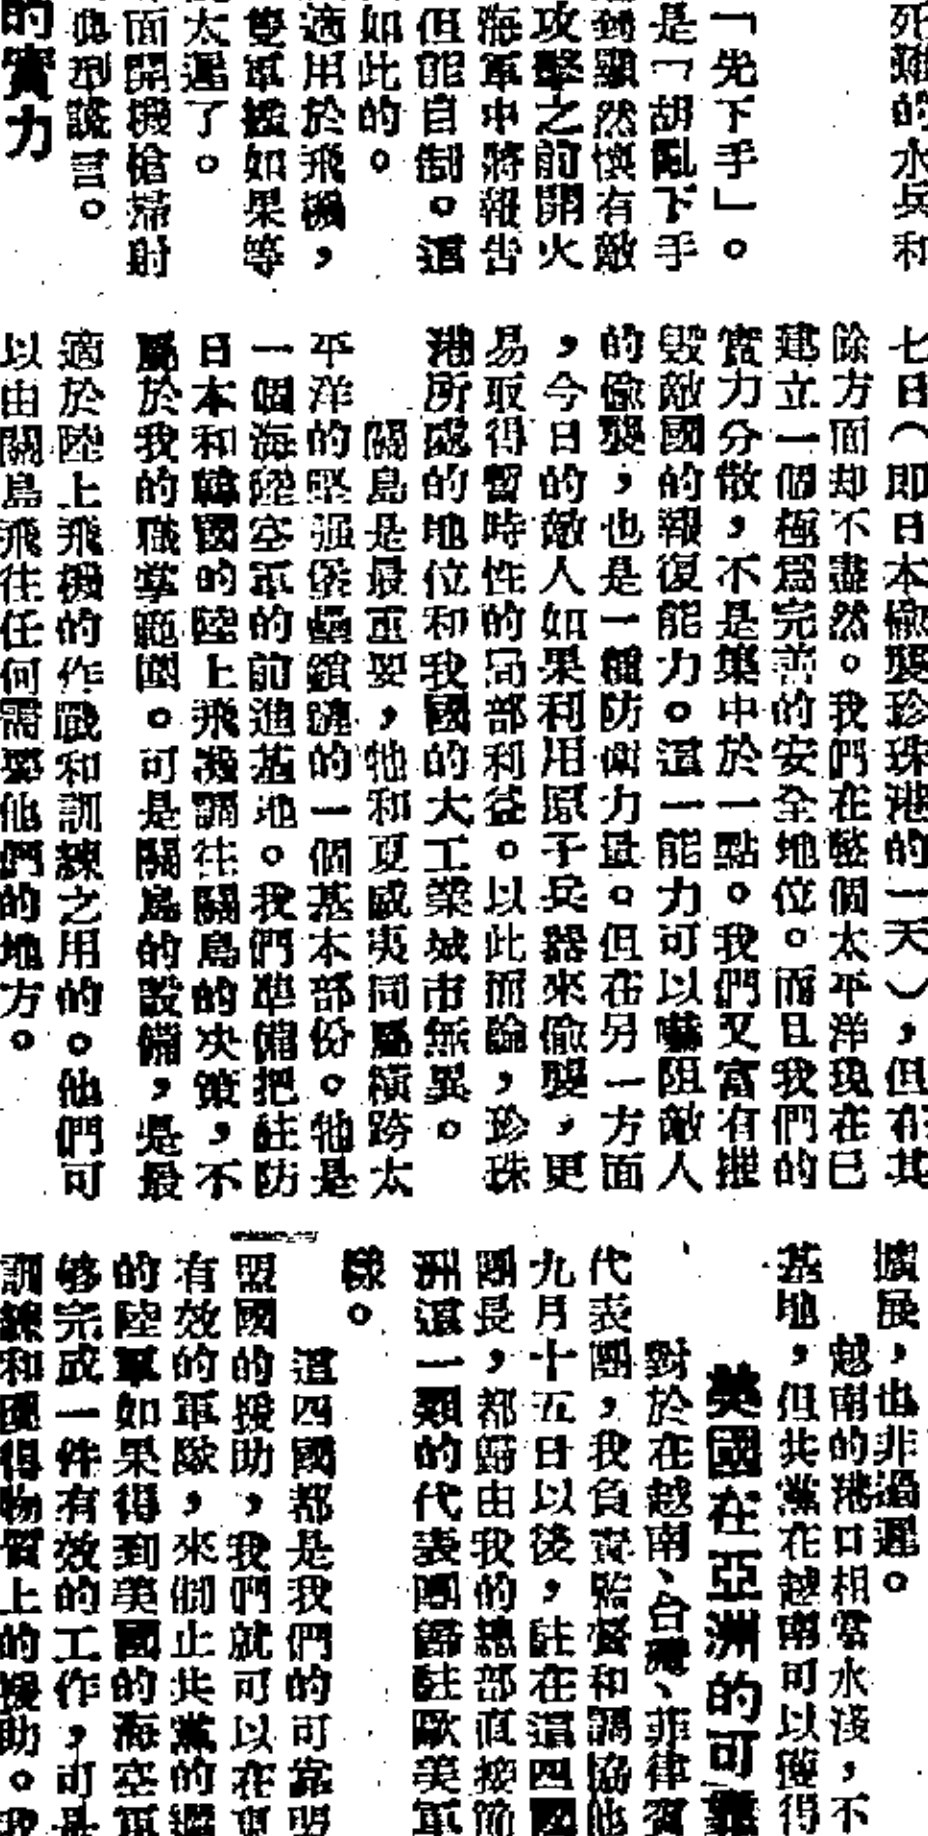 死難的水兵和
「先下手」。
是「胡亂下手
到顯然懷有敵
攻擊之前開火
海軍中將報告
但能自制。這
如此的。
適用於飛機，
雙軍艦如果等
太遲了。
面開機槍掃射
典型謊言。
的實力
七日（即日本偷襲珍珠港的一天），但在其
除方面却不盡然。我們在整個太平洋現在已
建立一個極爲完善的安全地位。而且我們的
實力分散，不是集中於一點。我們又富有摧
毀敵國的報復能力。這一能力可以嚇阻敵人
的偷襲，也是一種防衛力量。但在另一方面
，今日的敵人如果利用原子兵器來偷襲，更
易取得暫時性的局部利益。以此而論，珍珠
港所處的地位和我國的大工業城市無異。
關島是最重要，牠和夏威夷同屬橫跨太
平洋的堅强堡壘鎖鏈的一個基本部份。牠是
一個海陸空軍的前進基地。我們準備把駐防
日本和韓國的陸上飛機調往關島的決策，不
屬於我的職掌範圍。可是關島的設備，是最
適於陸上飛機的作戰和訓練之用的。他們可
以由關島飛往任何需要他們的地方。
擴展，也非過遲。
越南的港口相當水淺，不
基地，但共黨在越南可以獲得
英國在亞洲的可靠
對於在越南、台灣、菲律賓
代表團，我負責監督和調協他
九月十五日以後，駐在這四國
團長，都歸由我的總部直接節
洲這一類的代表團歸駐歐美軍
樣。
這四國都是我們的可靠盟
盟國的援助，我們就可以在東
有效的軍隊，來制止共黨的
的陸軍如果得到美國的海空軍
够完成一件有效的工作，可是
訓練和獲得物質上的援助。我